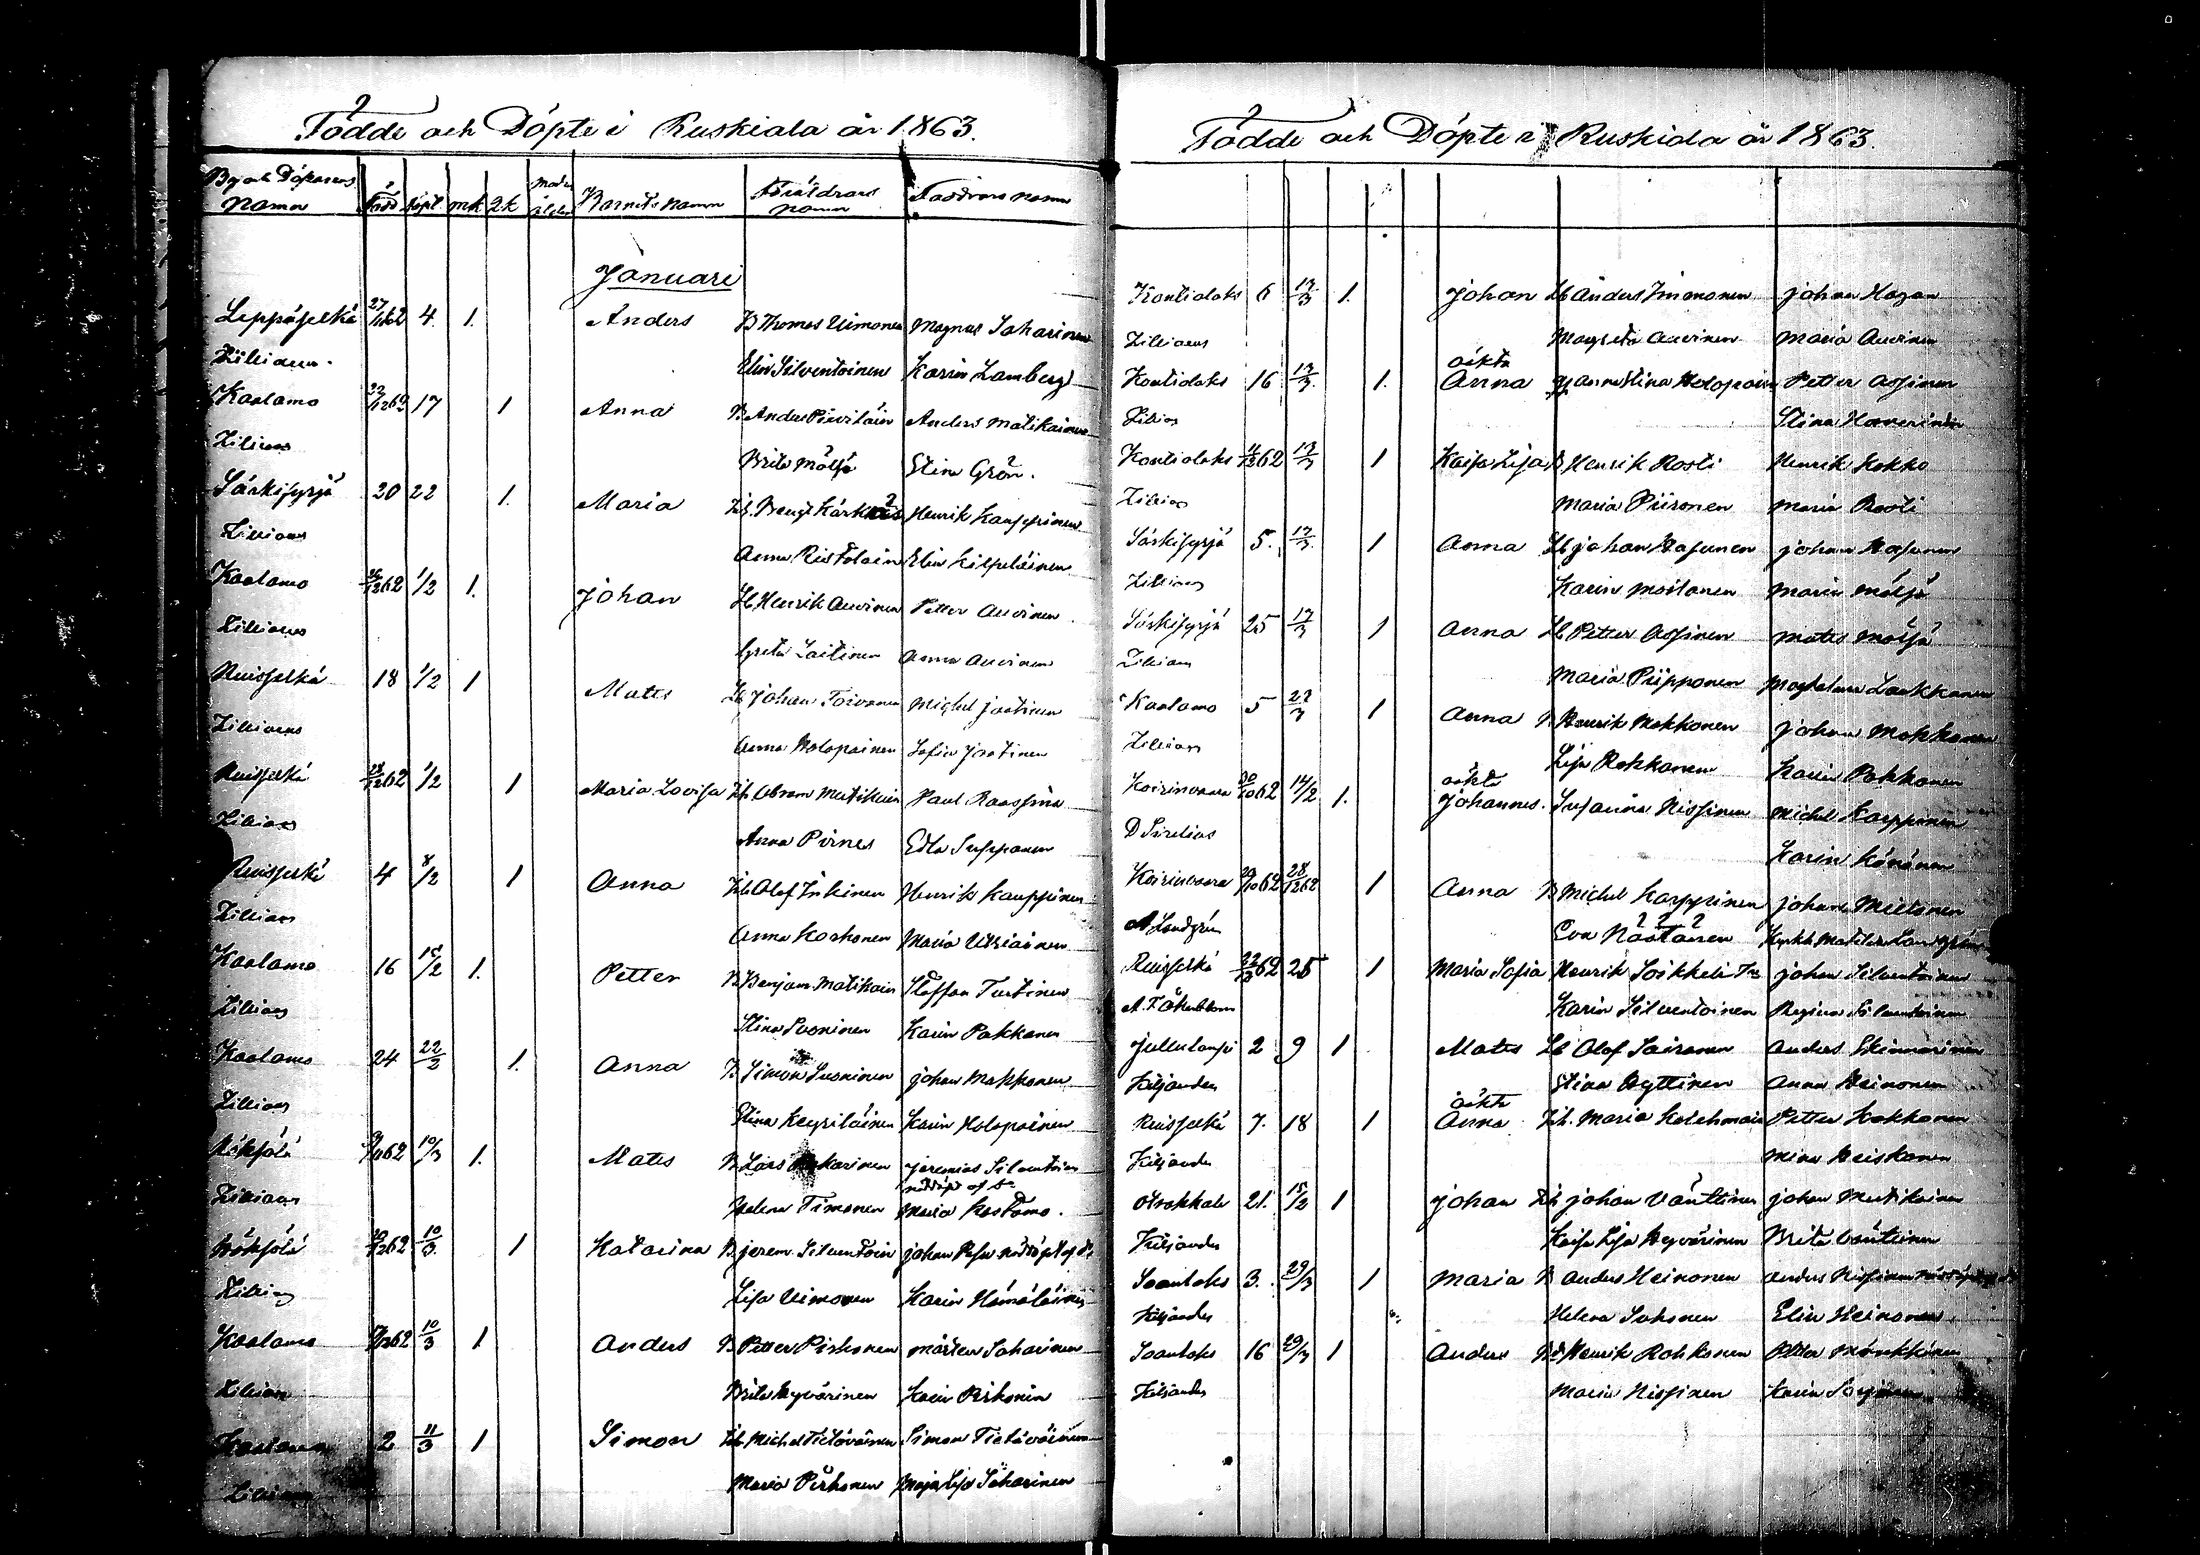 Födde och Döpte i Ruskiala år 1863.
By och Döparens Namn Född döpt mk qk Moders ålder Barnets namn Föräldrars namn Faddrars namn
Januari
Leppäselkä 27/1162 4. 1. Anders B Thomas Uimonen Magnus Saharinen
Zilliacus. Elin Silventoinen Karin Lamberg
Kaalamo 22/1262 17 1 Anna B Anders Anders Matikainen
Zilliacus Brita Mölsä Stina Grön.
Särkisyrjä 20 22 1. Maria Lb. Bengt Henrik Kauppinen
Zilliacus Anna Ristolain Elin Kilpeläinen
Kaalamo 26/1262 1/2 1. Johan Lb Henrik Auvinen Petter Auvinen
Zilliacus Greta Laitinen Anna Auvinen
Ruisselkä 18 1/2 1 Mats Lb Johan Toivanen Michel Jaatinen
Zilliacus Anna Holopainen Sofia Jaatinen
Ruisselkä 28/1262 1/2 1 Maria Lovisa Lb Abram Matikain Paul
Zilliacus Anna Pirnes Edla Supponen
Ruisselkä 4 8/2 1 Anna Lb Olof Inkinen Henrik Kauppinen
Zilliacus Anna Korhonen Maria Utriainen
Kaalamo 16 15/2 1. Petter B Benjam. Matikain Staffan Turtinen
Zilliacus Stina Suoninen Karin Pakkanen
Kaalamo 24 22/2 1. Anna B Simon Suoninen Johan Makkonen
Zilliacus Stina Keyriläinen Karin Holopainen
62 10/3 1. Mats B Lars Jeremias Silventoinen
nöddöpt af
Zilliacus Helena Timonen Maria Kostamo.
62 10/3 1 Katarina B Jerem. Silventoin Johan nöddöpt af
Zilliacus Lisa Uimonen Karin Hämäläinen
Kaalamo 62 10/3 1 Anders B Petter Pirhonen Mårten Saharinen
Zilliacus Brita Hyvärinen Karin Pirhonen
Kaalamo 2 11/3 1 Simon Lb Michel Tietäväinen Simon Tietäväinen
Zilliacus Maria Pirhonen Maja Lisa Saharinen
Födde och Döpte i Ruskiala år 1863.
Kontiolaks 6 17/3 1. Johan Lb Anders Immonen Johan Hazan
Zilliacus Margreta Auvinen Maria Auvinen
oäkta
Kontiolaks 16 17/3 1. Anna Anna Stina Holopain Petter Assinen
Zillias Stina
Kontiolaks 62 17/3 1 Kaisa Lisa B Henrik Rosti Henrik Kokko
Zillias Maria Piironen Maria Rosti
Särkisyrjä 5. 17/3. 1 Anna Lb Johan Hassunen Johan Hassunen
Zilliacus Karin Moilanen Maria Mölsä
Särkisyrjä 25 17/3 1 Anna Lb Petter Assinen Mats Mölsä
Zilliacus Maria Piipponen Magdalena Laukkanen
Kaalamo 5 22/3 1 Anna B Henrik Makkonen Johan Makkonen
Zillias Lisa Pakkanen Karin Pakkanen
oäkta
Koirinvaara 30/1062 14/2 1. Johannes. Susanna Nissinen Michel Karppinen
D Sirelius Karin Könönen
Koirinvaara 29/1062 28/1262 1 Anna B Michel Karppinen Johan Mietonen
A Landgrén Eva
Ruisselkä 22/1262 25 1 Maria Sofia Henrik Soikkeli Johan Silventoinen
A. Karin Silventoinen Regina Silventoinen
2 9 1 Mats Lb Olof Sairanen Anders Skinnarinen
Kiljander Stina Hyttinen Anna Heinonen
oäkta
Ruisselkä 7. 18 1 Anna Lb. Maria Kolehmain Petter Kokkonen
Kiljander Mina Heiskanen
Otrakkala 21. 15/2 1 Johan Lb Johan Vänttinen Johan Matikainen
Kiljander Kaisa Lisa Hyvärinen Brita Vänttinen
Soanlaks 3. 29/3 1 Maria B Anders Heinonen Anders Nissinen
Kiljander Helena Suhonen Elin Heinonen
Soanlaks 16 29/3 1 Anders Henrik Rohkonen Petter Mönkkönen
Kiljander Maria Nissinen Karin